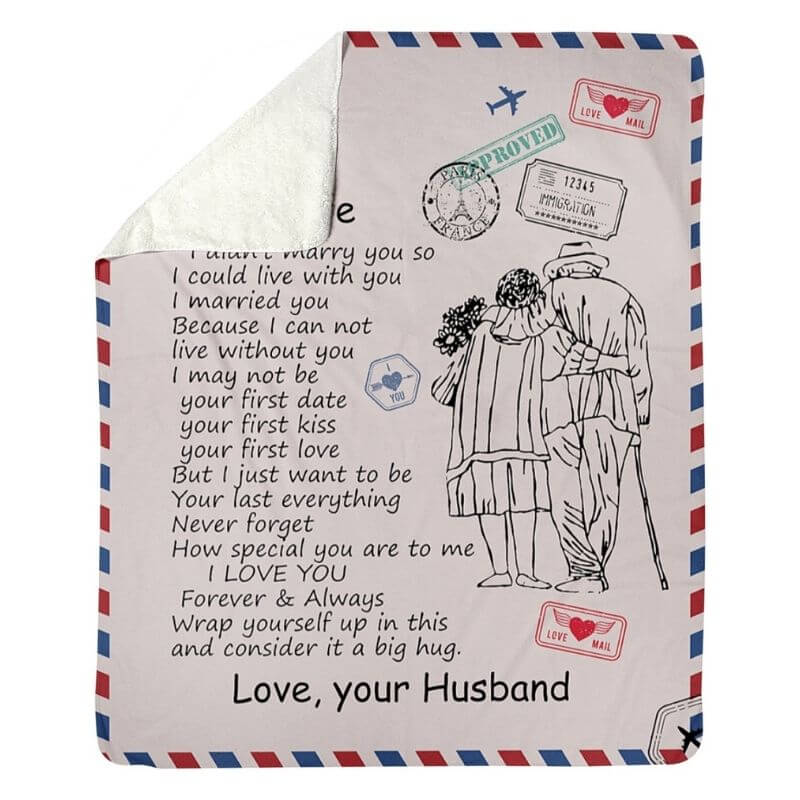 LOVE MAIL
APPROVED
PARIS
FRANCE
12345
IMMIGRATION
★★★★★★★★★★★
e
I didn't marry you so
I could live with you
I married you
Because I can not
live without you
I may not be
your first date
your first kiss
your first love
I
YOU
But I just want to be
Your last everything
Never forget
How special you are to me
I LOVE YOU
Forever & Always
Wrap yourself up in this
and consider it a big hug.
LOVE MAIL
Love, your Husband